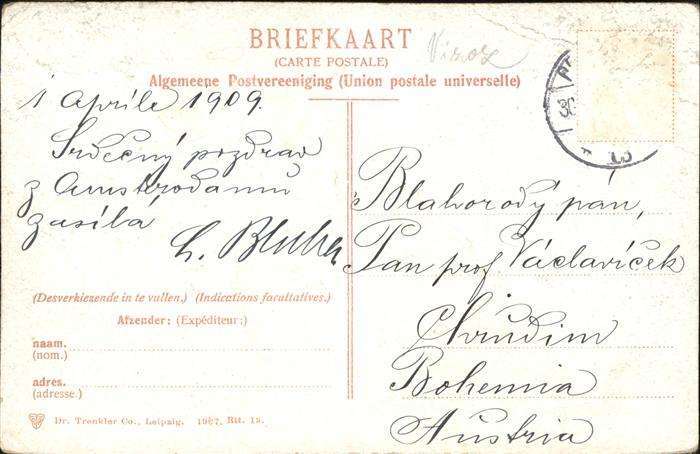 BRIEFKAART
(CARTE POSTALE)
Algemeene Postvereeniging (Union postale universelle)
1 Aprile 1909.
Srdečný pozdrav
z Amstrodamu
zasílá
L.
Blahorodý pán,
Pan prof Václavíček
Chrudim
Bohemia
Austria
(Desverkiezende in te vullen.) (Indications facultatives.)
Afzender: (Expéditeur:)
naam.
(nom.)
adres.
(adresse.)
Dr. Trenkler Co., Leipzig. 1907. Btt. 19.